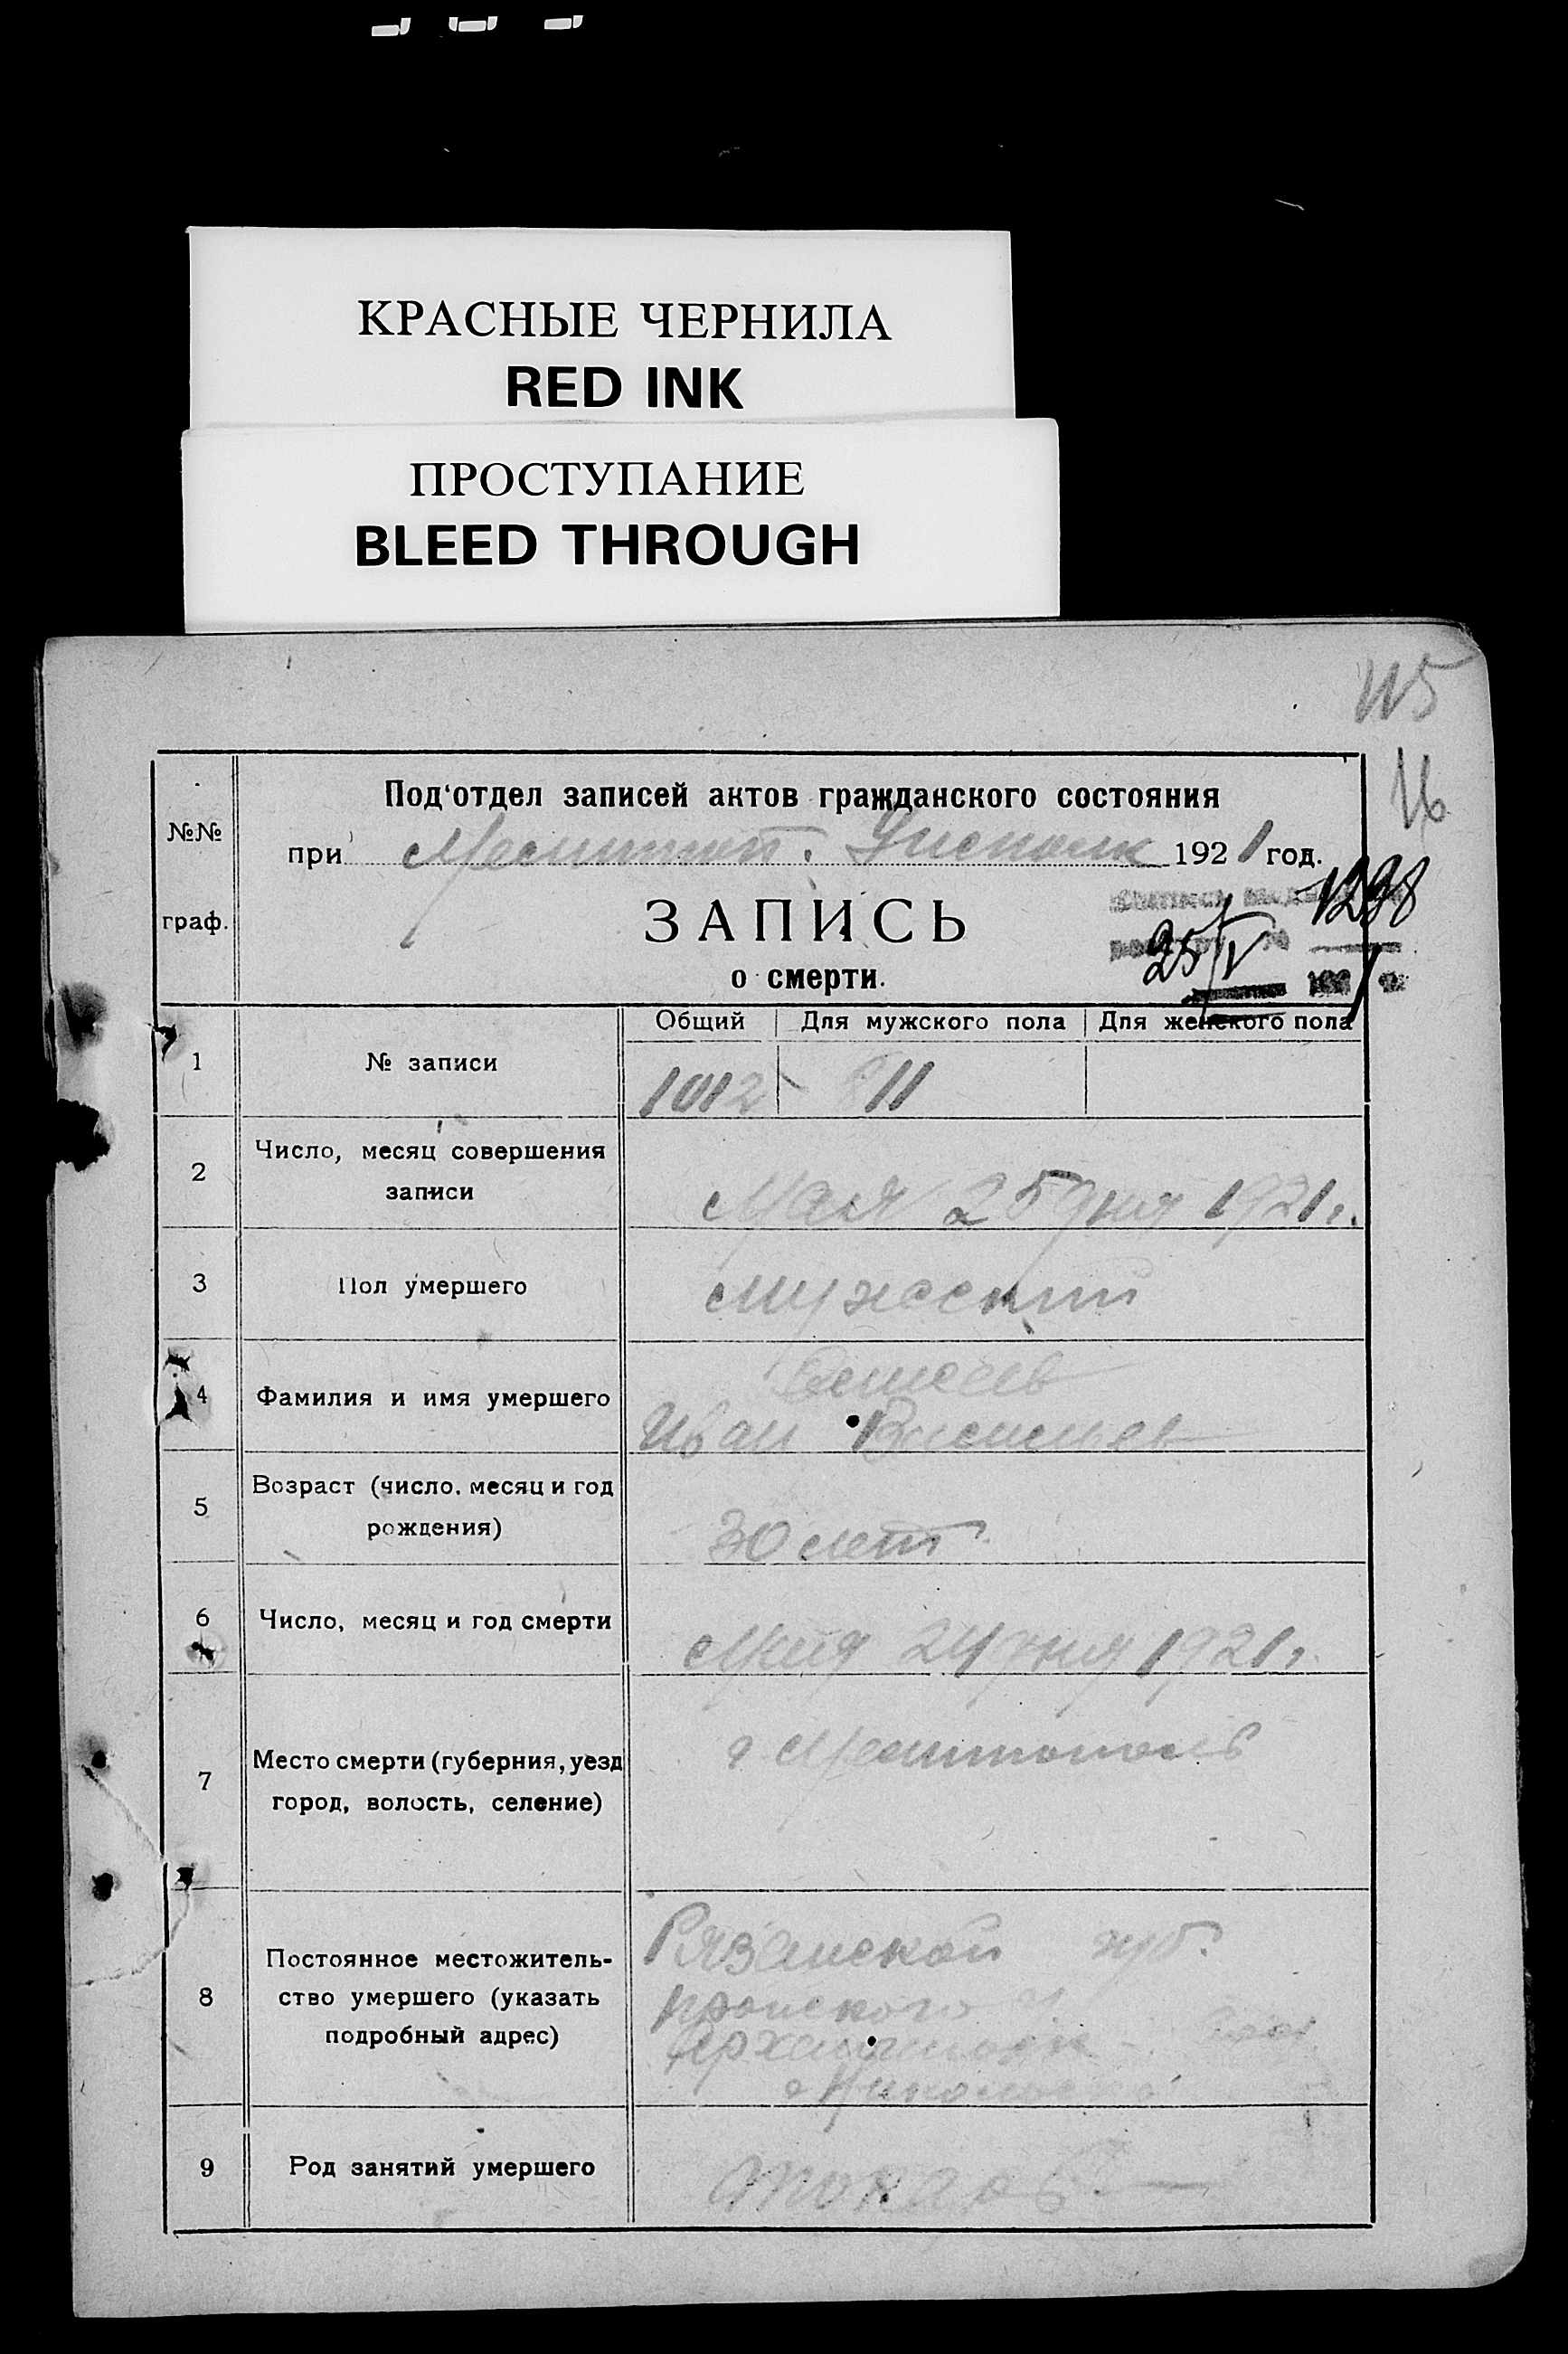 КРАСНЫЕ ЧЕРНИЛА
RED INK
ПРОСТУПАНИЕ
BLEED THROUGH
115
16
№№
граф.
Под'отдел записей актов гражданского состояния
при Мелитоп. 1921 год.
ЗАПИСЬ
о смерти.
1298
25/V
Общий Для мужского пола Для женского пола
1 № записи 1012 811
2 Число, месяц совершения
записи
Мая 25 дня 1921 г.
3 Пол умершего мужской
4 Фамилия и имя умершего
Иван
5 Возраст (число, месяц и год
рождения)
30 лет
6 Число, месяц и год смерти Мая 24 дня 1921 г.
7 Место смерти (губерния, уезд
город, волость, селение)
г Мелитополь
8 Постоянное местожитель-
ство умершего (указать
подробный адрес)
Рязанской губ.
Пронского у
9 Род занятий умершего